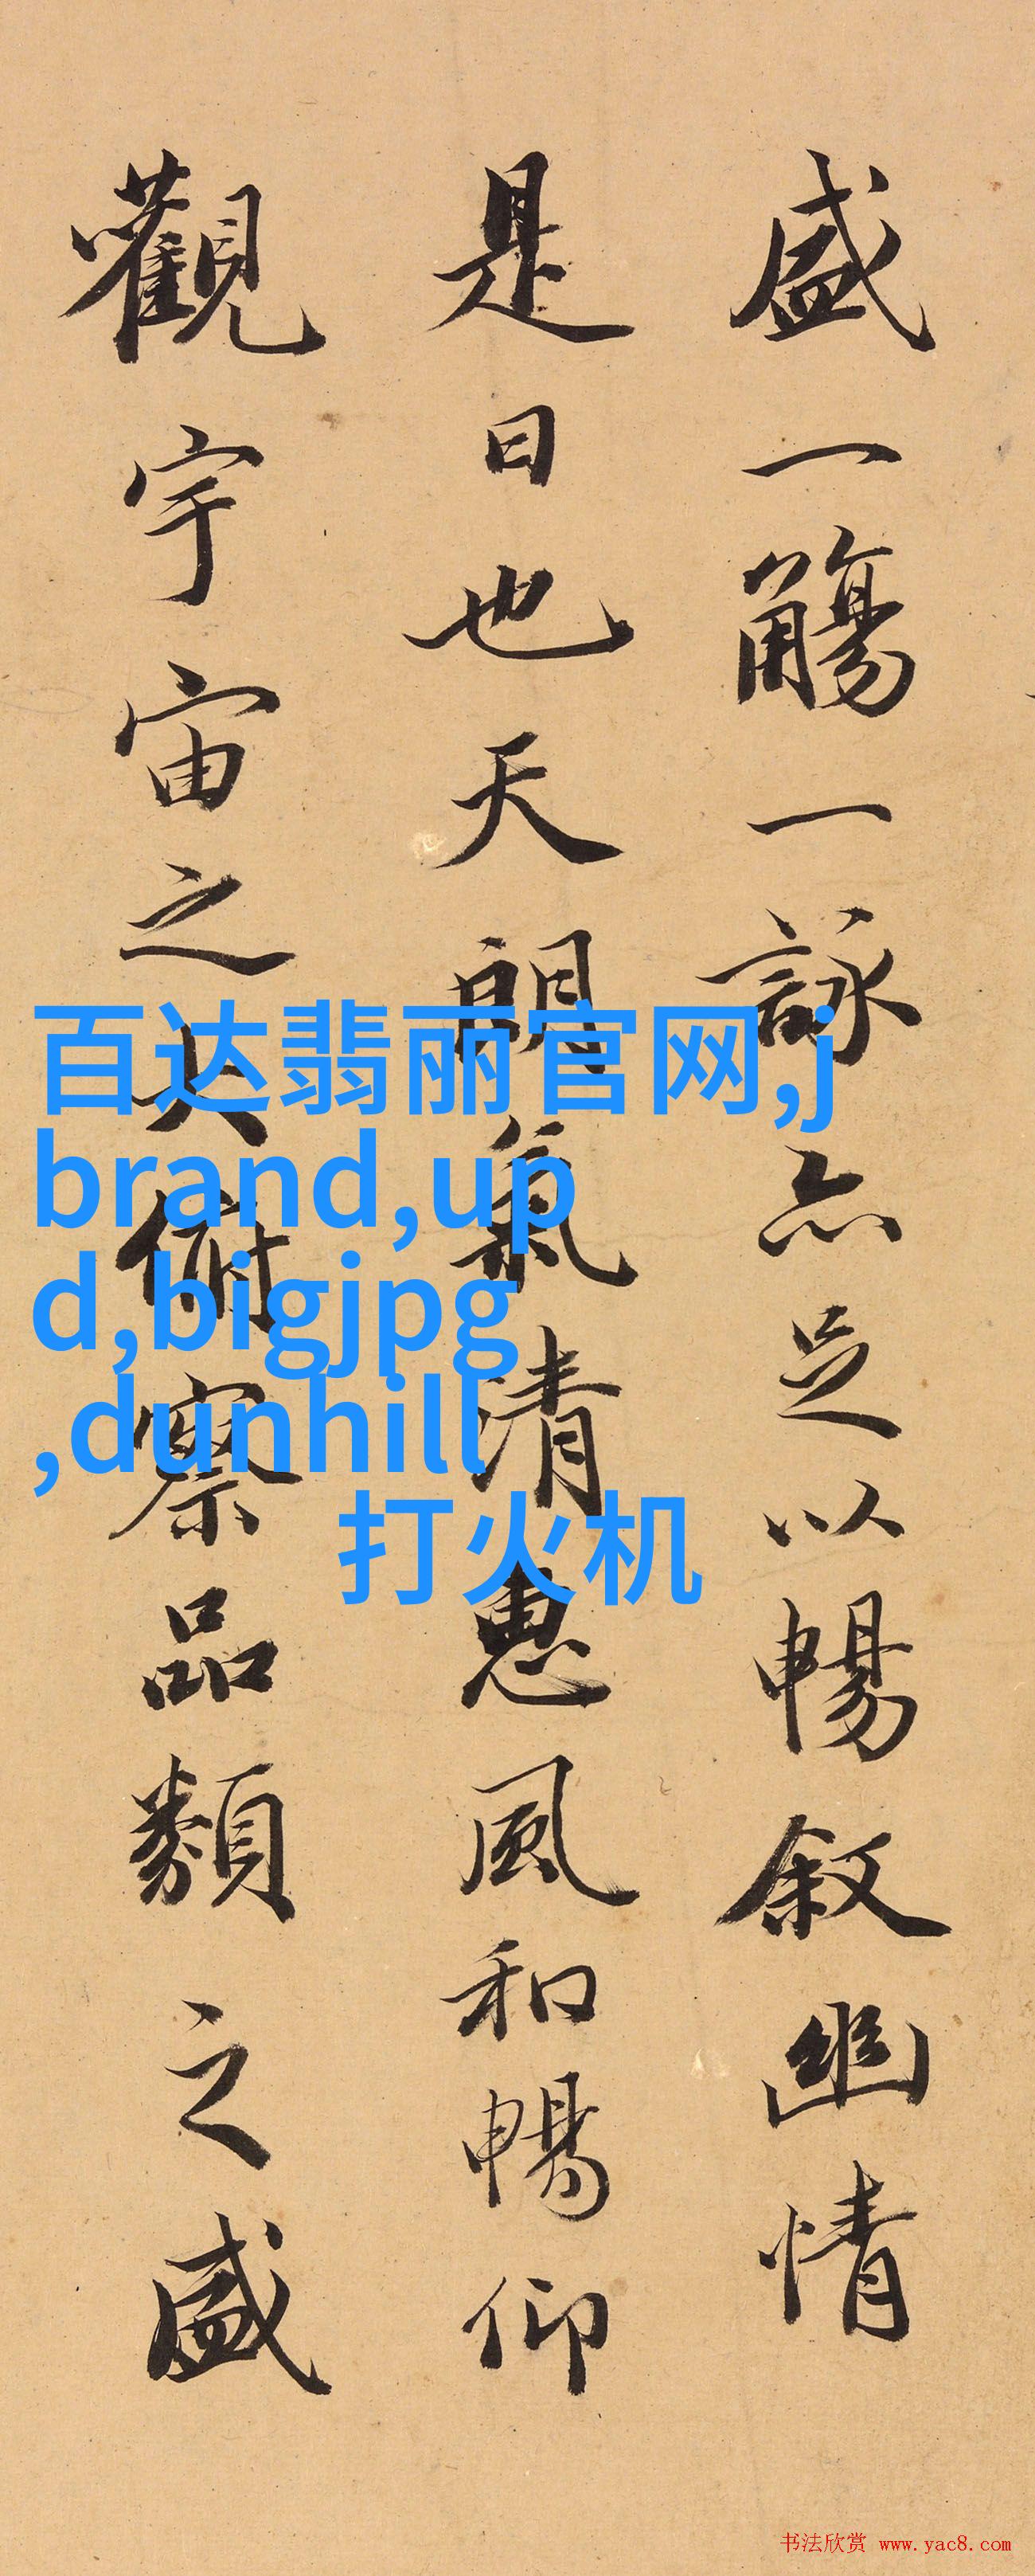 盛一觴一詠亦足以暢叙幽情
是日也天朗氣清惠風和暢仰
觀宇宙之大俯察品類之盛
百达翡丽官网,j
brand,up
d,bigjpg
,dunhill
打火机
书法欣赏 www.yac8.com